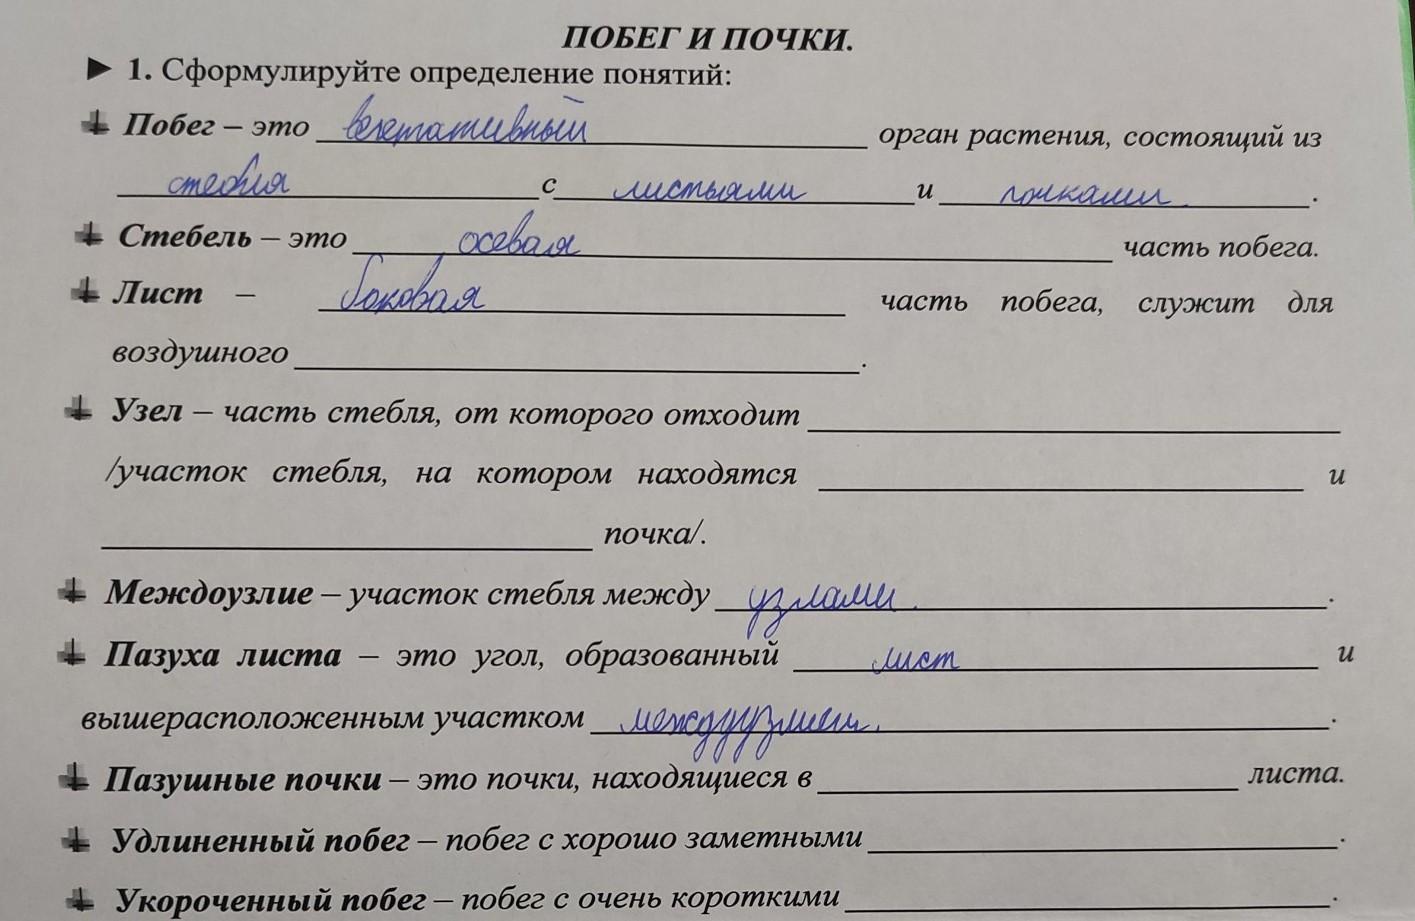 ПОБЕГ И ПОЧКИ.
► 1. Сформулируйте определение понятий:
Побег – это вегетативный орган растения, состоящий из
стебля с листьями и почками.
Стебель – это осевая часть побега.
Лист – боковая часть побега, служит для
воздушного .
Узел – часть стебля, от которого отходит
/участок стебля, на котором находятся и
почка/.
Междоузлие – участок стебля между узлами.
Пазуха листа – это угол, образованный лист и
вышерасположенным участком междуузлием.
Пазушные почки – это почки, находящиеся в листа.
Удлиненный побег – побег с хорошо заметными .
Укороченный побег – побег с очень короткими .